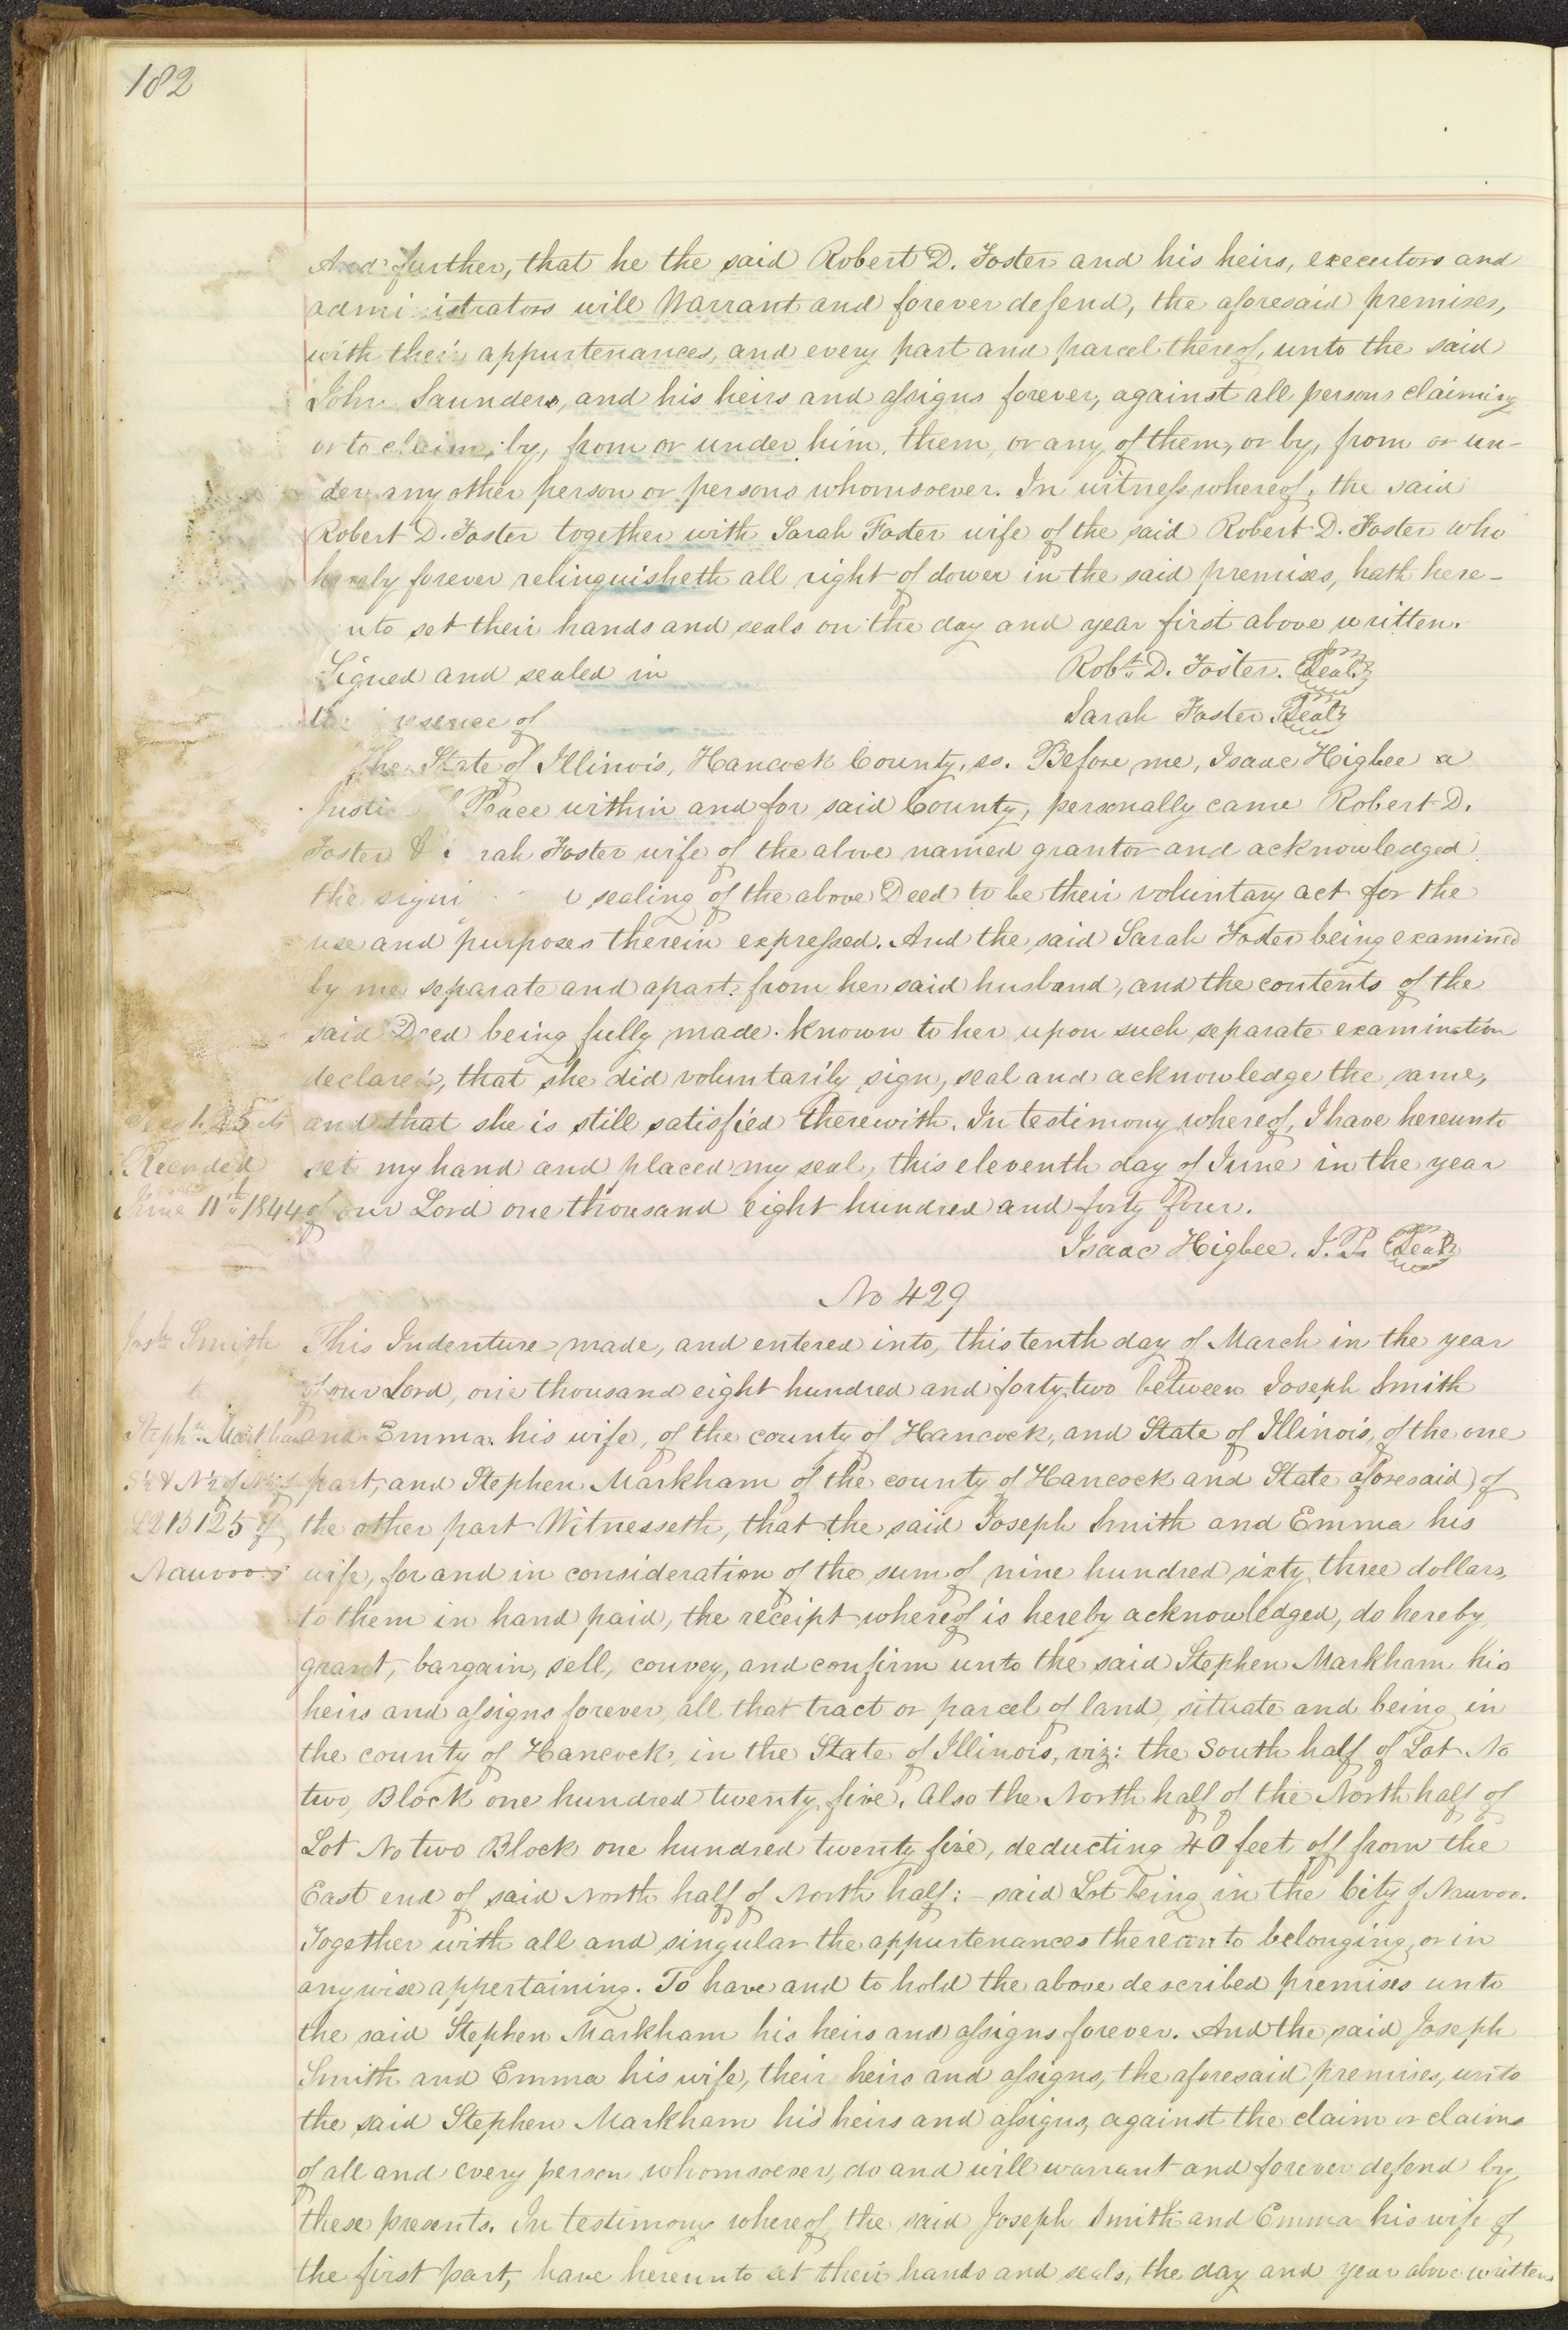 182
And further, that he the said Robert D. Foster and his heirs, executors and
administrators will Warrant and forever defend, the aforesaid premises,
with their appurtenances, and every part and parcel thereof, unto the said
John Saunders, and his heirs and assigns forever, against all persons claiming
or to claim, by, from or under him, them, or any of them, or by, from or un-
der any other person or persons whomsoever. In witness whereof, the said
Robert D. Foster together with Sarah Foster wife of the said Robert D. Foster who
hereby forever relinquisheth all right of dower in the said premises, hath here-
unto set their hands and seals on the day and year first above written.
Signed and sealed in Robt. D. Foster. Seal
resence of Sarah Foster. Seal
The State of Illinois, Hancock County, ss. Before me, Isaac Higbee a
Justic Peace within and for said County, personally came Robert D.
Foster & rah Foster wife of the above named grantor and acknowledged
the signi sealing of the above Deed to be their voluntary act for the
use and purposes therein expressed. And the said Sarah Foster being examined
by me separate and apart from her said husband, and the contents of the
said Deed being fully made known to her upon such separate examination
declared, that she did voluntarily sign, seal and acknowledge the same,
Fees 1.25 cts and that she is still satisfied therewith. In testimony whereof, I have hereunto
Recorded set my hand and placed my seal, this eleventh day of June in the year
June 11th 1844 of our Lord one thousand eight hundred and forty four.
Isaac Higbee. J.P. Seal
No 429
Josh Smith This Indenture made, and entered into, this tenth day of March in the year
to of our Lord, one thousand eight hundred and forty two between Joseph Smith
Stephn Markham and Emma his wife, of the county of Hancock, and State of Illinois, of the one
part, and Stephen Markham of the county of Hancock and State aforesaid of
L2 B125 of the other part Witnesseth, that the said Joseph Smith and Emma his
Nauvoo wife, for and in consideration of the sum of nine hundred sixty three dollars,
to them in hand paid, the receipt whereof is hereby acknowledged, do hereby
grant, bargain, sell, convey, and confirm unto the said Stephen Markham his
heirs and assigns forever, all that tract or parcel of land, situate and being in
the county of Hancock, in the State of Illinois, viz: the South half of Lot No
two, Block one hundred twenty five. Also the North half of the North half of
Lot No two Block one hundred twenty five, deducting 40 feet off from the
East end of said North half of North half:- said Lot being in the City of Nauvoo.
Together with all and singular the appurtenances thereunto belonging, or in
anywise appertaining. To have and to hold the above described premises unto
the said Stephen Markham his heirs and assigns forever. And the said Joseph
Smith and Emma his wife, their heirs and assigns, the aforesaid premises, unto
the said Stephen Markham his heirs and assigns, against the claim or claims
of all and every person whomsoever, do and will warrant and forever defend by
these presents. In testimony whereof, the said Joseph Smith and Emma his wife of
the first part, have hereunto set their hands and seals, the day and year above written